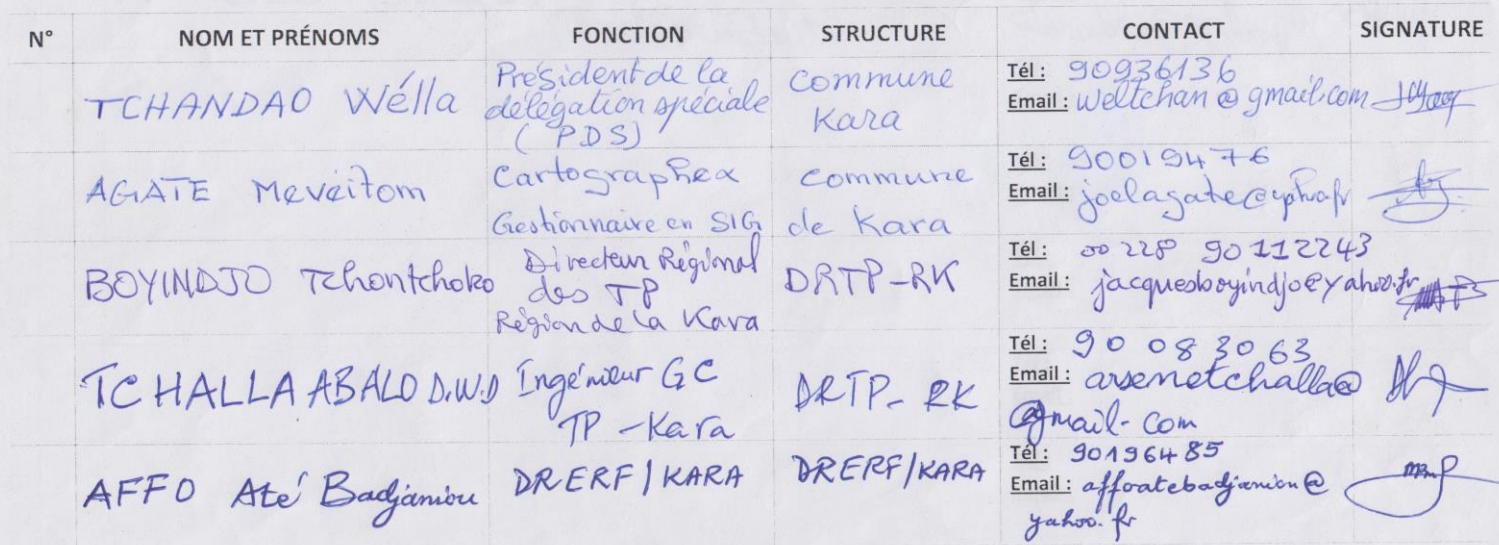 N° NOM ET PRÉNOMS FONCTION STRUCTURE CONTACT SIGNATURE
TCHANDAO Wélla
Président de la
délégation spéciale
(PDS)
Commune
Kara
Tél : 90936136
Email : weltchan@gmail.com
AGATE Mevéitom
Cartographe
Gestionnaire en SIG
Commune
de Kara
Tél : 90019476
Email : joelagate@yahoo.fr
BOYINDJO Tchontchoko
Directeur Régional
des TP
Région de la Kara
DRTP-RK
Tél : 00 228 90112243
Email : jacquesboyindjo@yahoo.fr
TCHALLA ABALO D.W.D
Ingénieur GC
TP - Kara
DRTP- RK
Tél : 90 08 30 63
Email : arsenetchalla@
@gmail-com
AFFO Até Badjaniou
DRERF/KARA
DRERF/KARA
Tél : 90196485
Email : affoatebadjaniou@
yahoo.fr